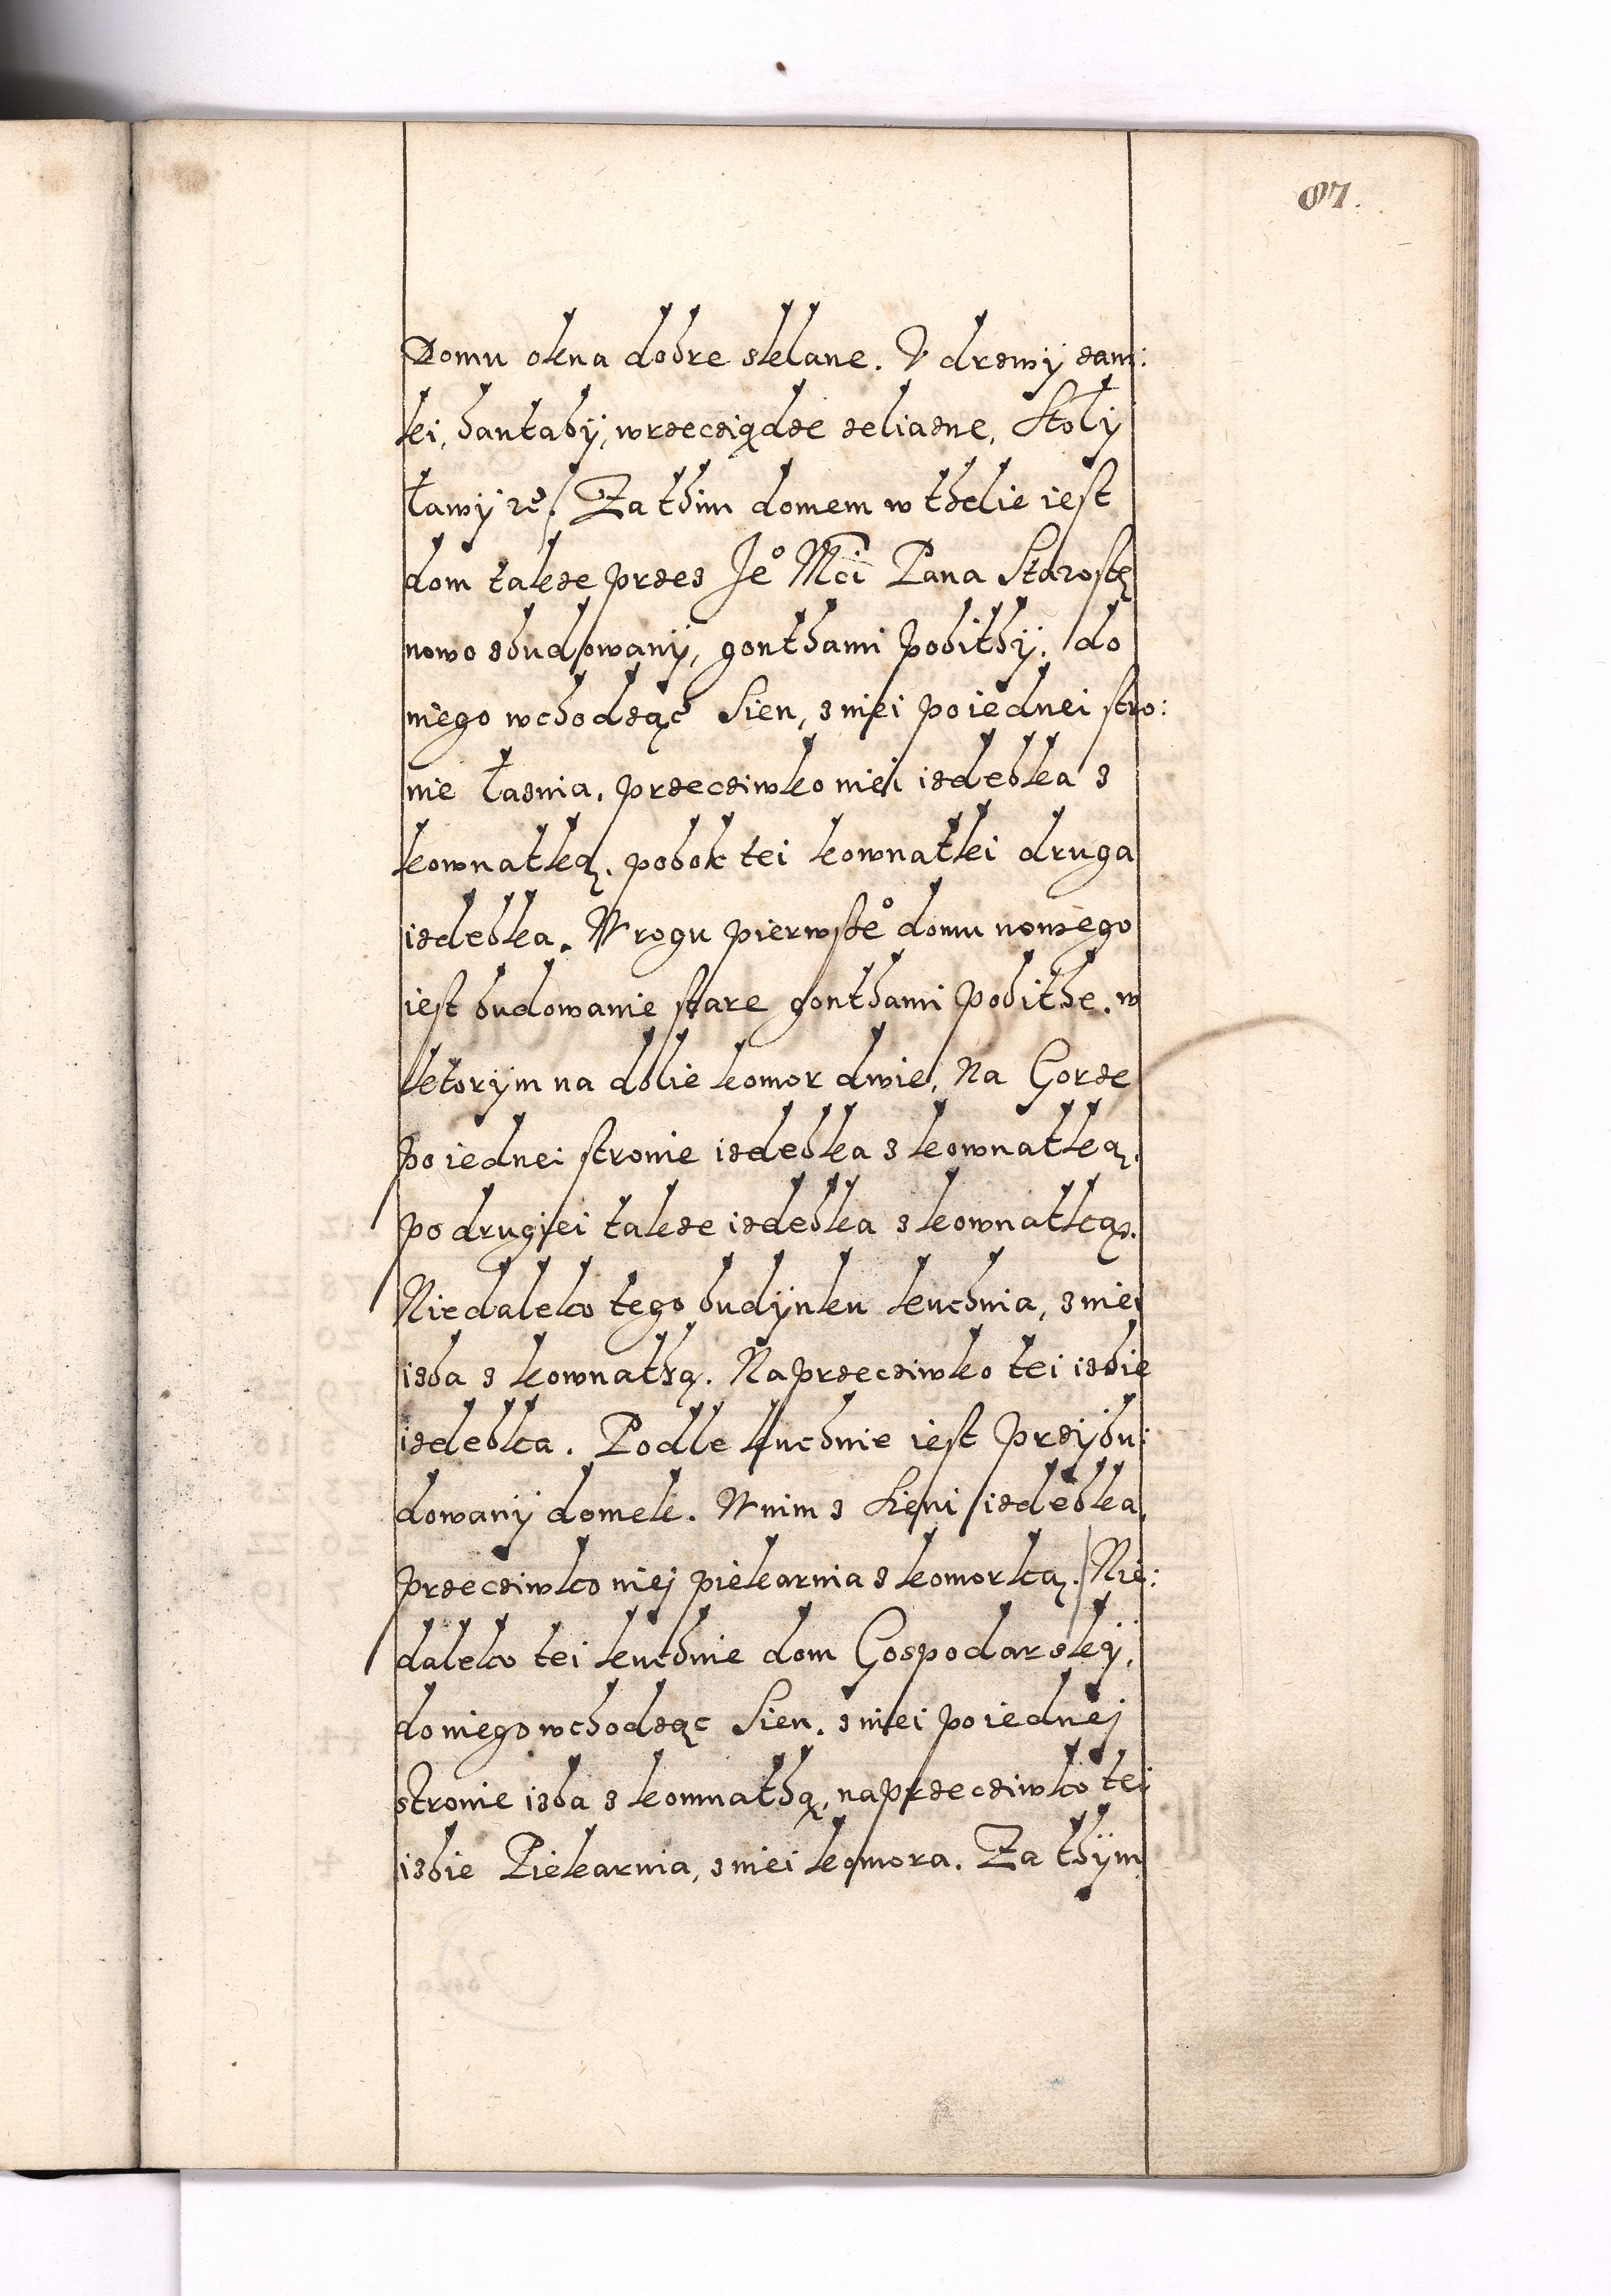 87.
Domu okna dobre sklane. V drzwÿ zam:
ki, hantabÿ, wrzecziądze zeliazne, Stołÿ
ławÿ zc̃. Za thim domem w thelie iest
dom takze przes Je° Mci Pana Starostę
nowo zbudowanÿ, gonthami pobithÿ, do
niego wchodząc Sien, z niei po iednei stro:
nie łaznia, przecziwko niei izdebka z
kownatką. pobok tei kownatkei druga
izdebka. W rogu pierwsze° domu nowego
iest budowanie stare gonthami pobithe. w
ktorÿm na dolie komor dwie, Na Gorze
po iednei stronie izdebka z kownatką.
po drugiei takze izdebka z kownatką.
Niedaleko tego budÿnku kuchnia, z niei
izba z kownathą. Naprzecziwko tei izbie
izdebka. Podle kuchnie iest przÿbu:
dowanÿ domek. W nim z Sieni izdebka,
przecziwko niej piekarnia z komorką. Nie:
daleko tei kuchnie dom Gospodarskÿ,
do niego wchodząc Sien. z niei po iednej
stronie izba z komnathą, naprzecziwko tei
izbie Piekarnia, z niei komora. Za thÿm